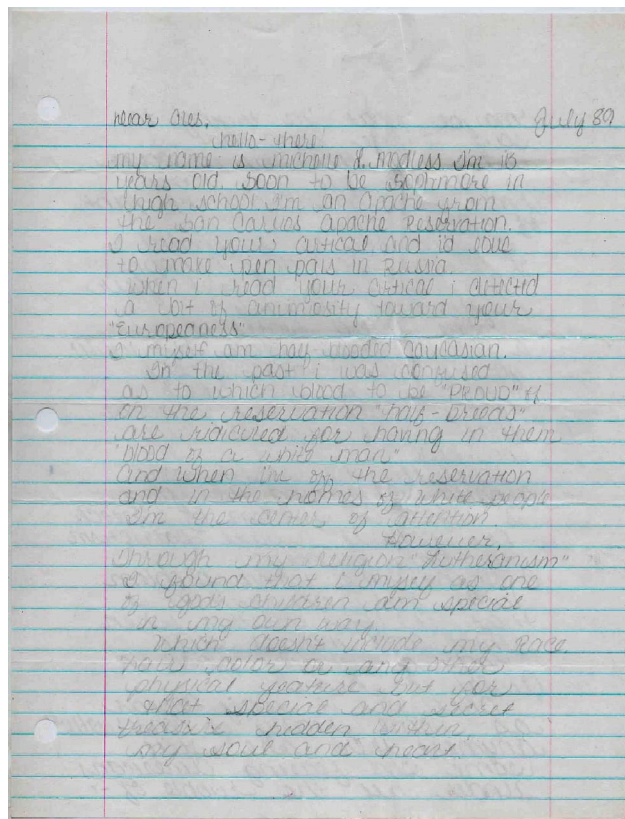 July 89
Dear Ores,
hello-there!
my name is michelle R. Modless I'm 15
years old. soon to be sophmore in
high school I'm an apache from
the San Carlos apache Reservation.
I read your artical and i'd love
to make pen pals in Russia.
when i read your artical i detected
a bit of animosity toward your
"Europeaness"
I myself am half blooded caucasian.
In the past i was confused
as to which blood to be "PROUD" of
on the reservation "half-breeds"
are ridiculed for having in them
"blood of a white man"
and when im off the reservation
and in the homes of white people
I'm the center of attention.
However,
through my religion "Lutheranism"
I found that i myself as one
of gods children am special
in my own way.
which doesn't include my Race,
hair color or any other
physical feature but for
that special and secret
hidden within
my soul and heart.